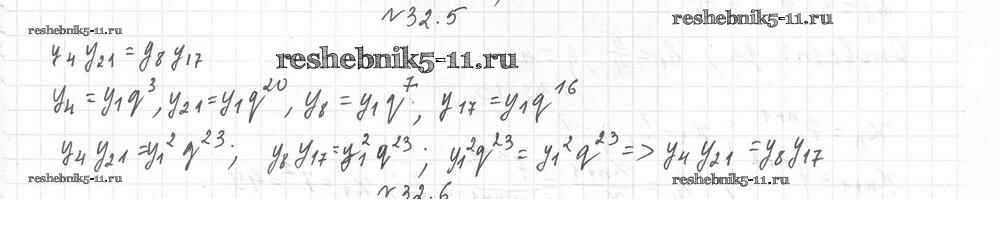 №32.5
reshebnik5-11.ru
reshebnik5-11.ru
y₄ y₂₁ = y₈ y₁₇
reshebnik5-11.ru
y₄ = y₁q³, y₂₁ = y₁q²⁰, y₈ = y₁q⁷, y₁₇ = y₁q¹⁶
y₄ y₂₁ = y₁² q²³; y₈ y₁₇ = y₁² q²³; y₁² q²³ = y₁² q²³ => y₄ y₂₁ = y₈ y₁₇
reshebnik5-11.ru
reshebnik5-11.ru
№32.6